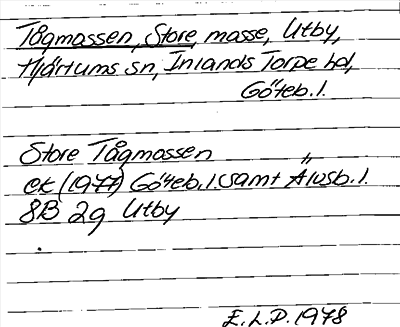 Tågmossen, Store, mosse, Utby,
Hjärtums sn, Inlands Torpe hd,
Göteb. l.
Store Tågmossen
ek (1977) Göteb. l. samt Älvsb. l.
8B 2g Utby
E.L.P. 1978